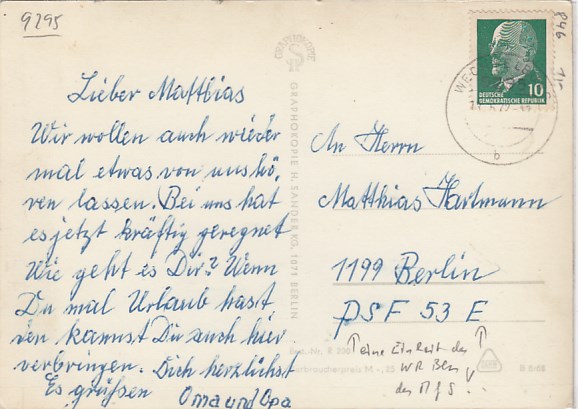 9295
Lieber Matthias
Wir wollen auch wieder
mal etwas von uns hö,
ren lassen. Bei uns hat
es jetzt kräftig geregnet
Wie geht es Dir? Wenn
Du mal Urlaub hast
den kannst Du auch hier
verbringen. Dich herzlichst
Es grüßen Oma und Opa
GRAPHOKOPIE
GRAPHOKOPIE H. SANDER KG, 1071 BERLIN
10
DEUTSCHE
DEMOKRATISCHE REPUBLIK
b
An Herrn
Matthias Hartmann
1199 Berlin
PSF 53 E
↑ eine Einheit des ↑
WR Bln
des MfS